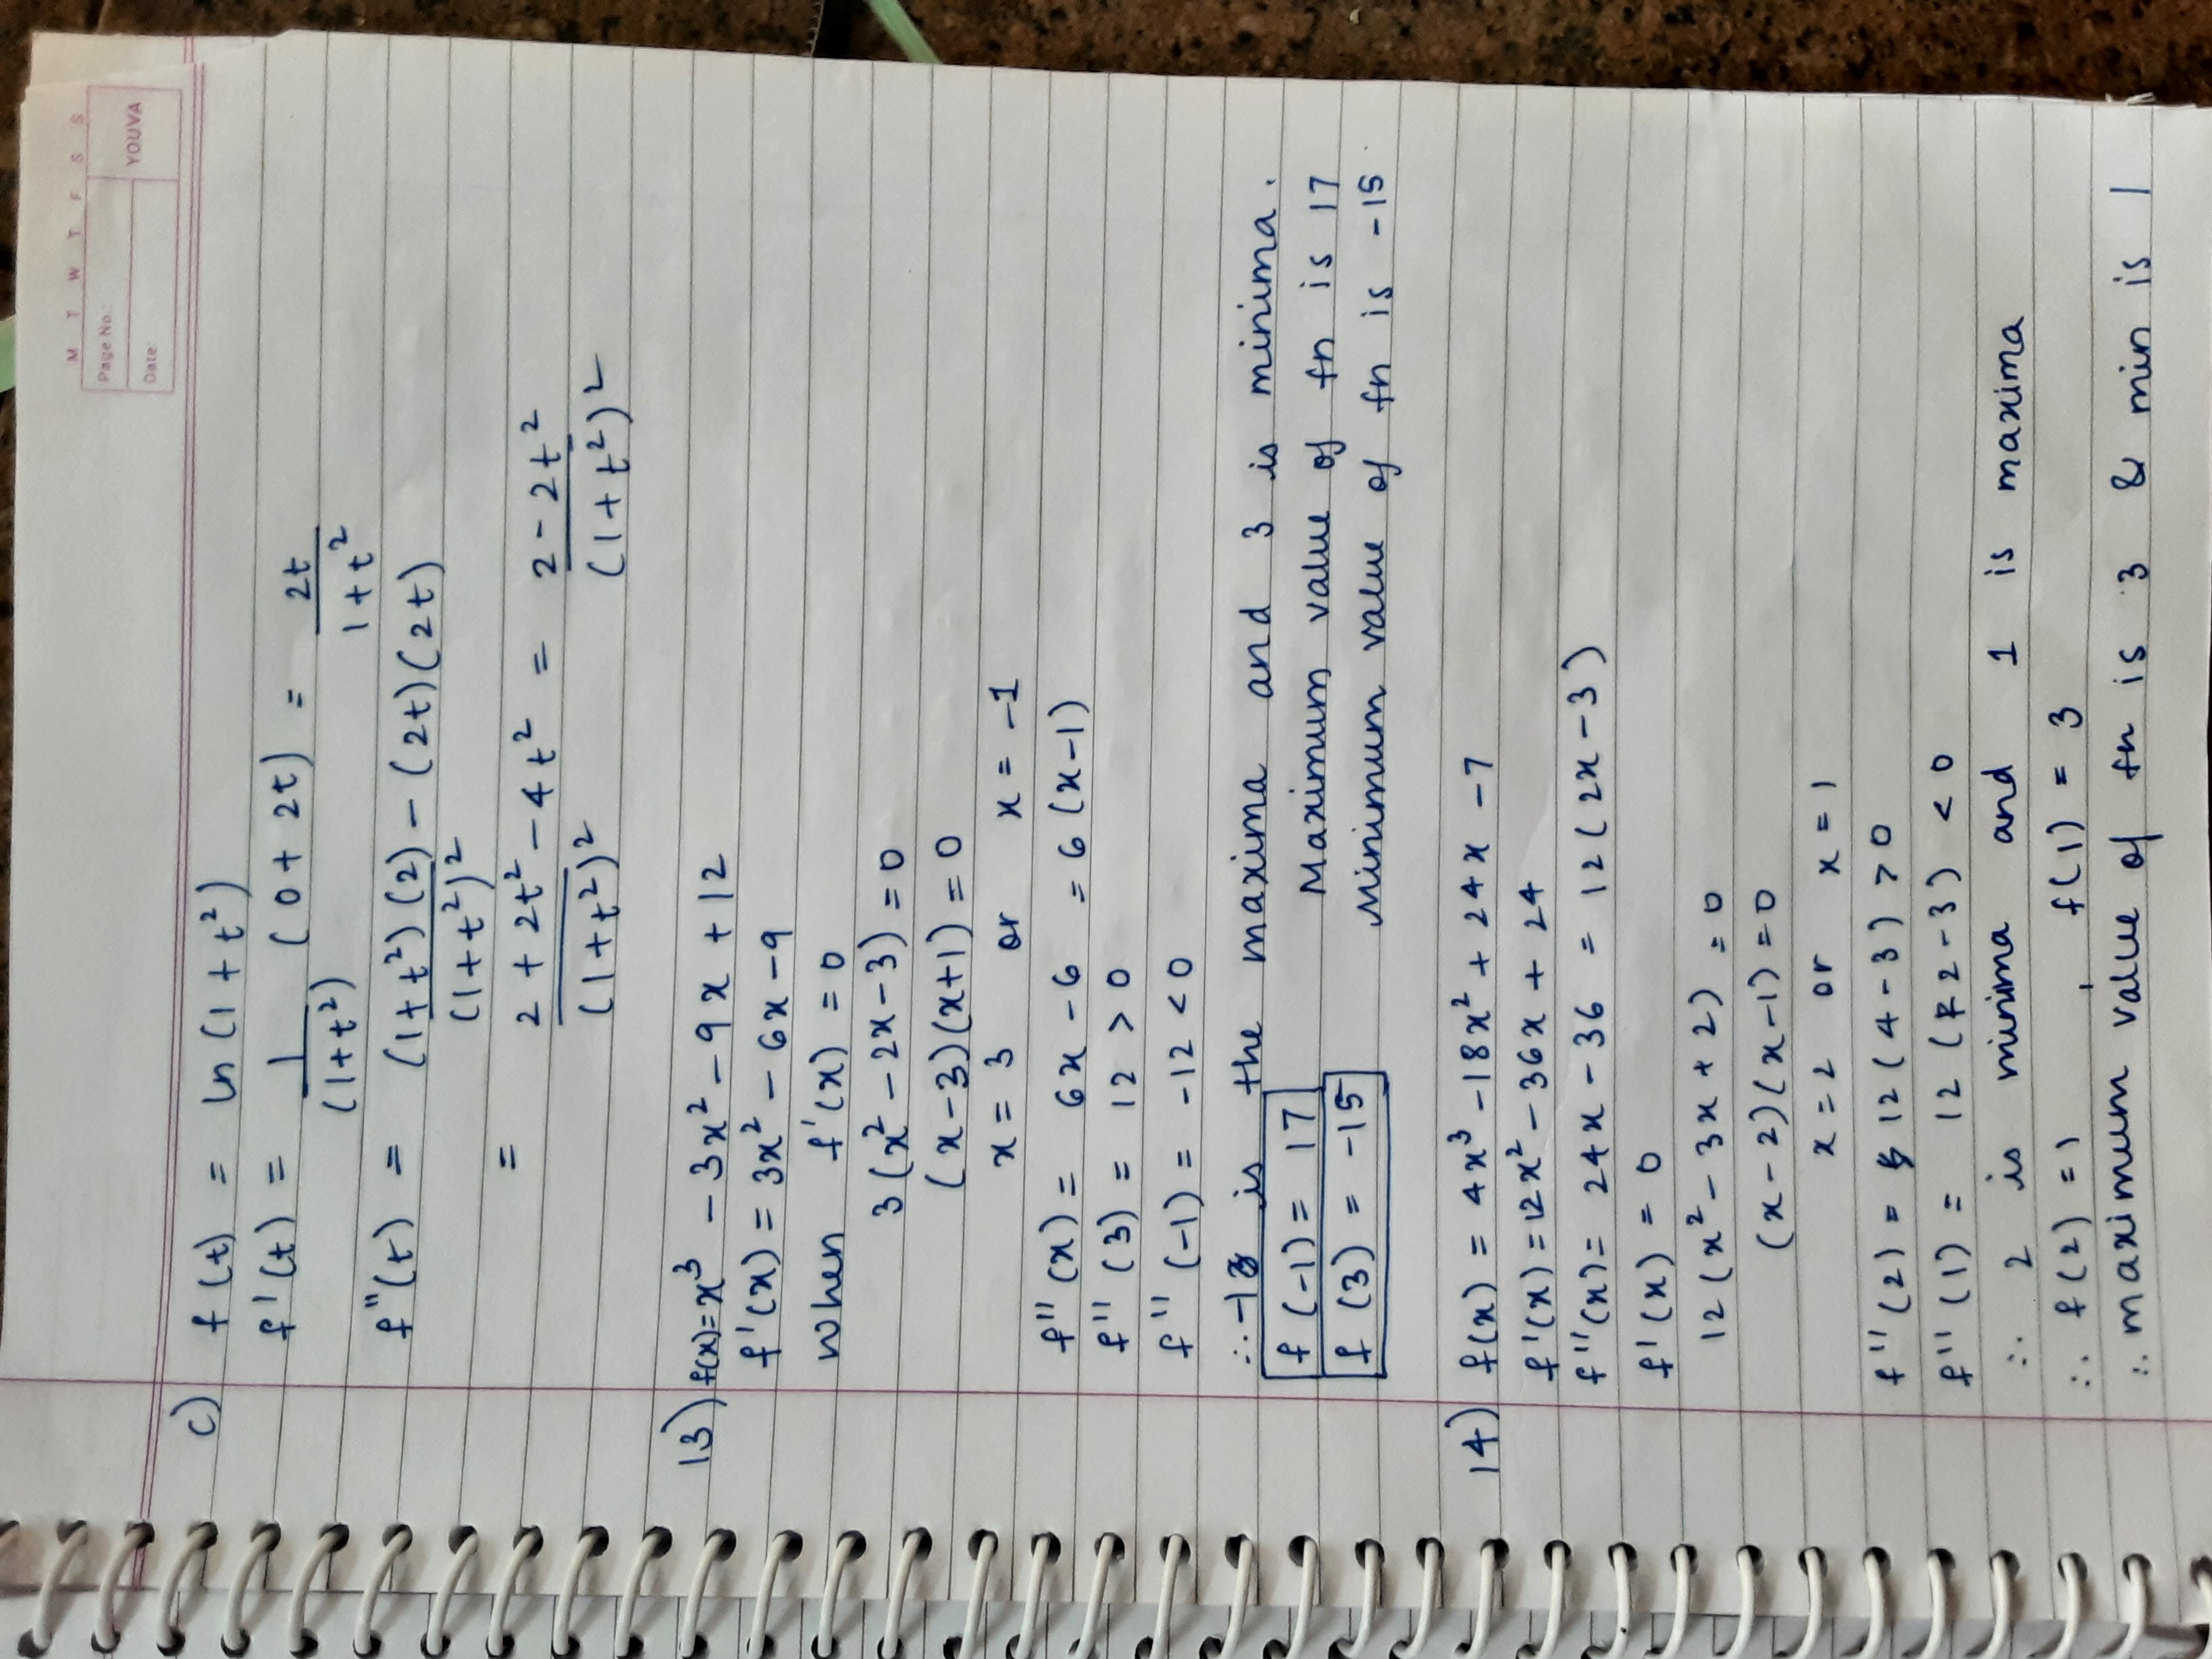 M T W T F S S
Page No.:
Date:
YOUVA
c) f(t) = ln(1+t²)
f'(t) = 1/(1+t²) (0+2t) = 2t/1+t²
f''(t) = (1+t²)(2) - (2t)(2t)/(1+t²)²
= 2+2t²-4t²/(1+t²)² = 2-2t²/(1+t²)²
13) f(x)=x³-3x²-9x+12
f'(x)=3x²-6x-9
When f'(x)=0
3(x²-2x-3)=0
(x-3)(x+1)=0
x=3 or x=-1
f''(x)= 6x-6 =6(x-1)
f''(3)= 12>0
f''(-1)= -12<0
∴ -1 is the maxima and 3 is minima.
f(-1)= 17 Maximum value of fn is 17
f(3)= -15 Minimum value of fn is -15
14) f(x)=4x³-18x²+24x-7
f'(x)=12x²-36x+24
f''(x)= 24x-36 = 12(2x-3)
f'(x)=0
12(x²-3x+2)=0
(x-2)(x-1)=0
x=2 or x=1
f''(2)= 12(4-3)>0
f''(1)= 12(2-3)<0
∴ 2 is minima and 1 is maxima
∴ f(2)=1 , f(1)=3
∴ maximum value of fn is 3 & min is 1